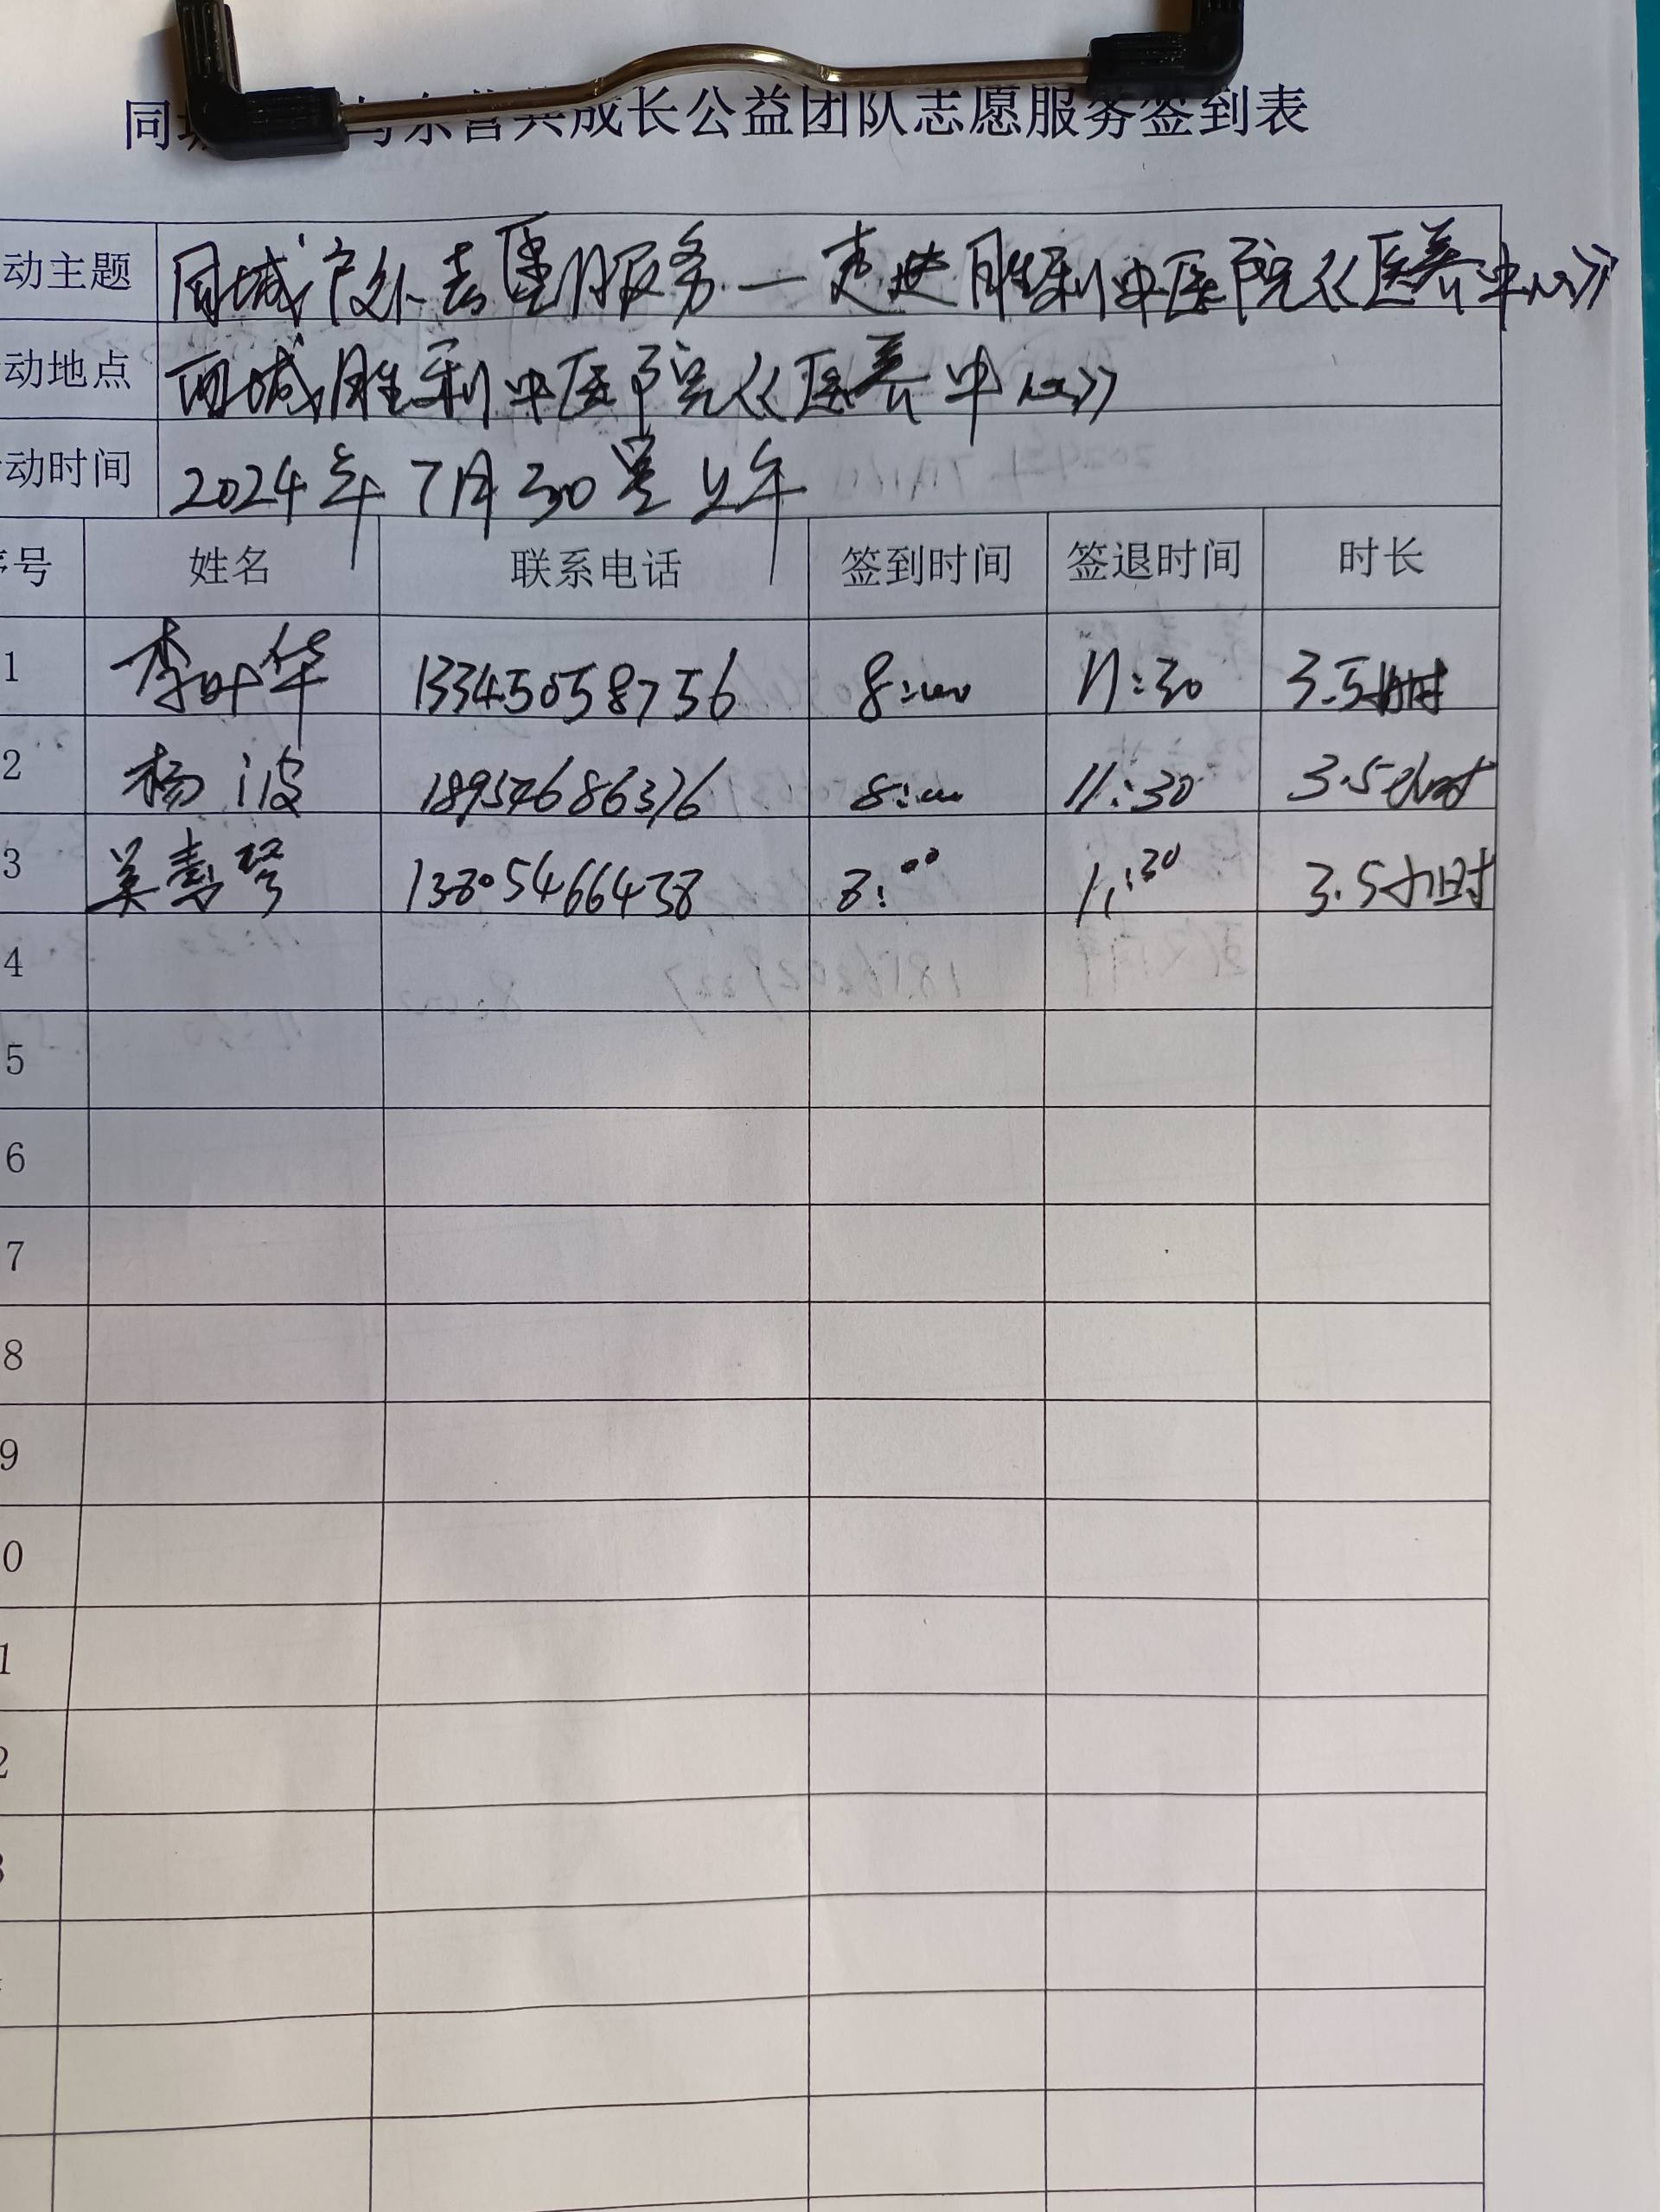 同城 与东营共成长公益团队志愿服务签到表
动主题 同城户外志愿服务—走进胜利中医院《医养中心》
动地点 西城胜利中医院《医养中心》
动时间 2024年7月30号上午
序号 姓名 联系电话 签到时间 签退时间 时长
1 李叶华 13345058756 8:00 11:30 3.5小时
2 杨波 18954686376 8:00 11:30 3.5小时
3 吴 13805466438 8:00 11:30 3.5小时
4
5
6
7
8
9
0
1
2
3